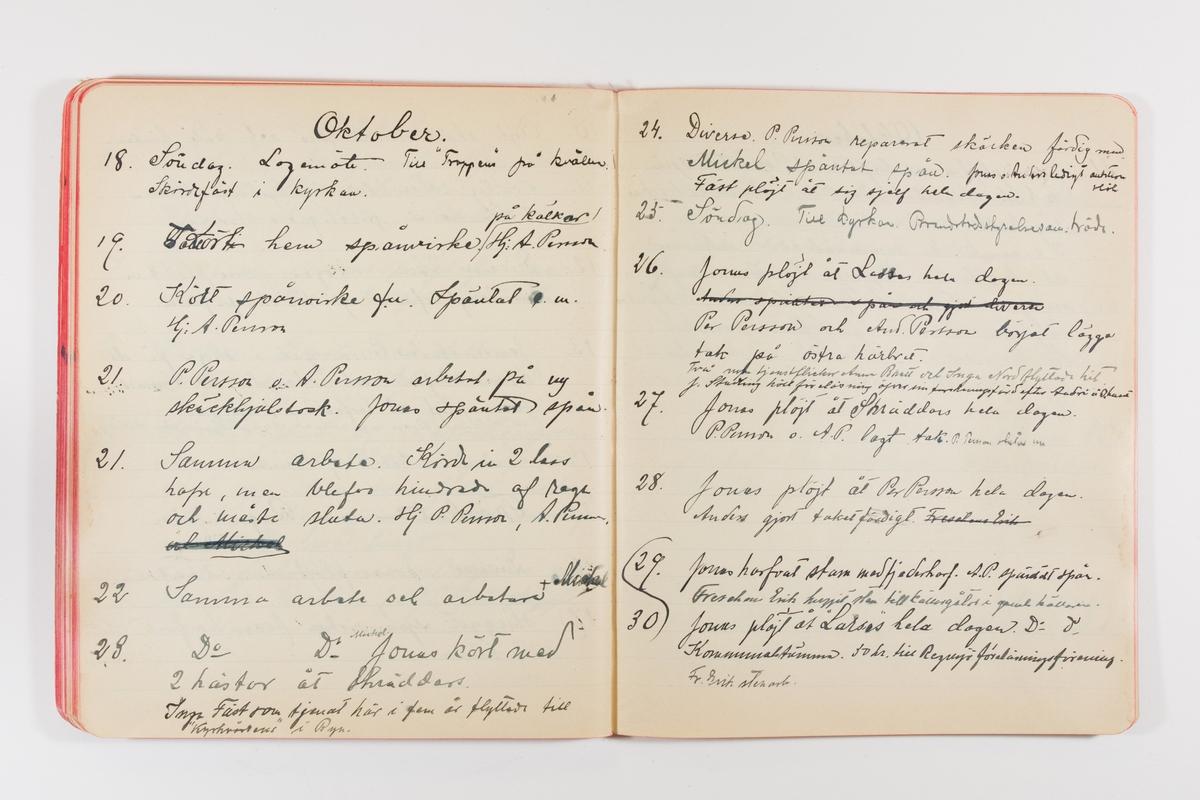 Oktober.
18. Söndag. Logemöte. Till "Trappens" på kvällen
Skördefäst i kyrkan.
på kälkar!
19. hem spånvirke. Hj. A. Persson
20. Kört spånvirke f.m. Späntat e.m.
Hj. A. Persson
21. P. Persson o. A. Persson arbetat på ny
skäckhjulstock. Jonas späntat spån.
21. Samma arbete. Körde in 2 lass
hafre, men blefvo hindrade af regn
och måste sluta. Hj P. Persson, A. Persson,
och Mickel
22 Samma arbete och arbetare + Mickel
23. Do Do Mickel Jonas kört med
2 hästar åt Skräddars.
Inga Fäst som tjenat här i fem år flyttade till
"Kyrkvärdens" i Byn.
24. Diverse. P. Persson reparerat skäcken färdig med
Mickel späntat spån. Jonas o. Anders ledigt
Fäst plöjt åt sig sjelf hela dagen.
25. Söndag. Till kyrkan.
26. Jonas plöjt åt Lasses hela dagen.
Anders späntat spån och gjort diverse
Per Persson och And. Persson börjat lägga
tak på östra härbret.
Två nya tjenstflickor Anna Barit och Inga Nord flyttade hit.
J. Stadling höll föreläsning öfver en forskningsfärd efter Andrée
27. Jonas plöjt åt Skräddars hela dagen.
P. Persson o. A.P. lagt tak. P. Persson slutar nu
28. Jonas plöjt åt Per Persson hela dagen.
Anders gjort taket färdigt. Freschens Erik
29. Jonas harfvat stam med fjederharf. A.P. späntat spån.
Freschens Erik huggit sten till källargolv i gamla källaren.
30 Jonas plöjt åt Larses hela dagen. Do Do
Kommunalstämma. 50 kr. till Ragunds föreläsningsförening.
Fr. Erik stenarb.